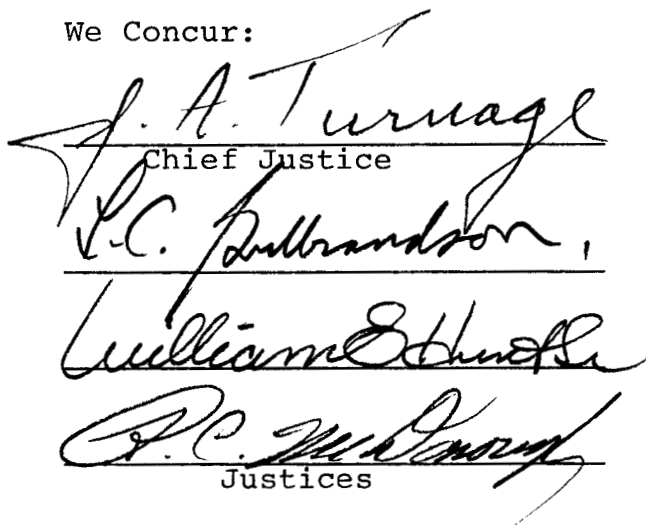 We Concur:
J. A. Turnage
Chief Justice
L.C. Gulbrandson,
William E Hunt Sr
R. C. McDonough
Justices